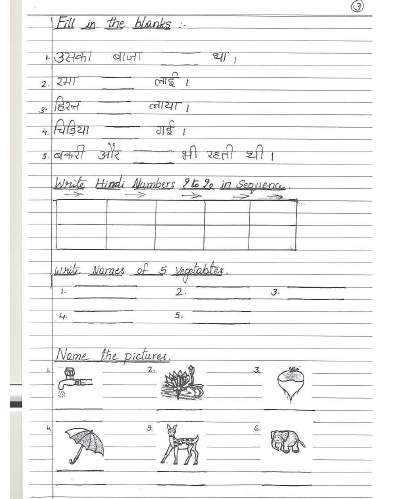 3
Fill in the blanks :-
1. उसका बाजा ____ था ।
2. रमा ____ लाई ।
3. हिरन ____ लाया ।
4. चिडिया ____ गई ।
5. बकरी और ____ भी रहती थी ।
Write Hindi Numbers १ to २० in Sequence.
Write Names of 5 Vegetables.
1. ____ 2. ____ 3. ____
4. ____ 5. ____
Name the pictures.
1. 2. 3.
4. 5. 6.